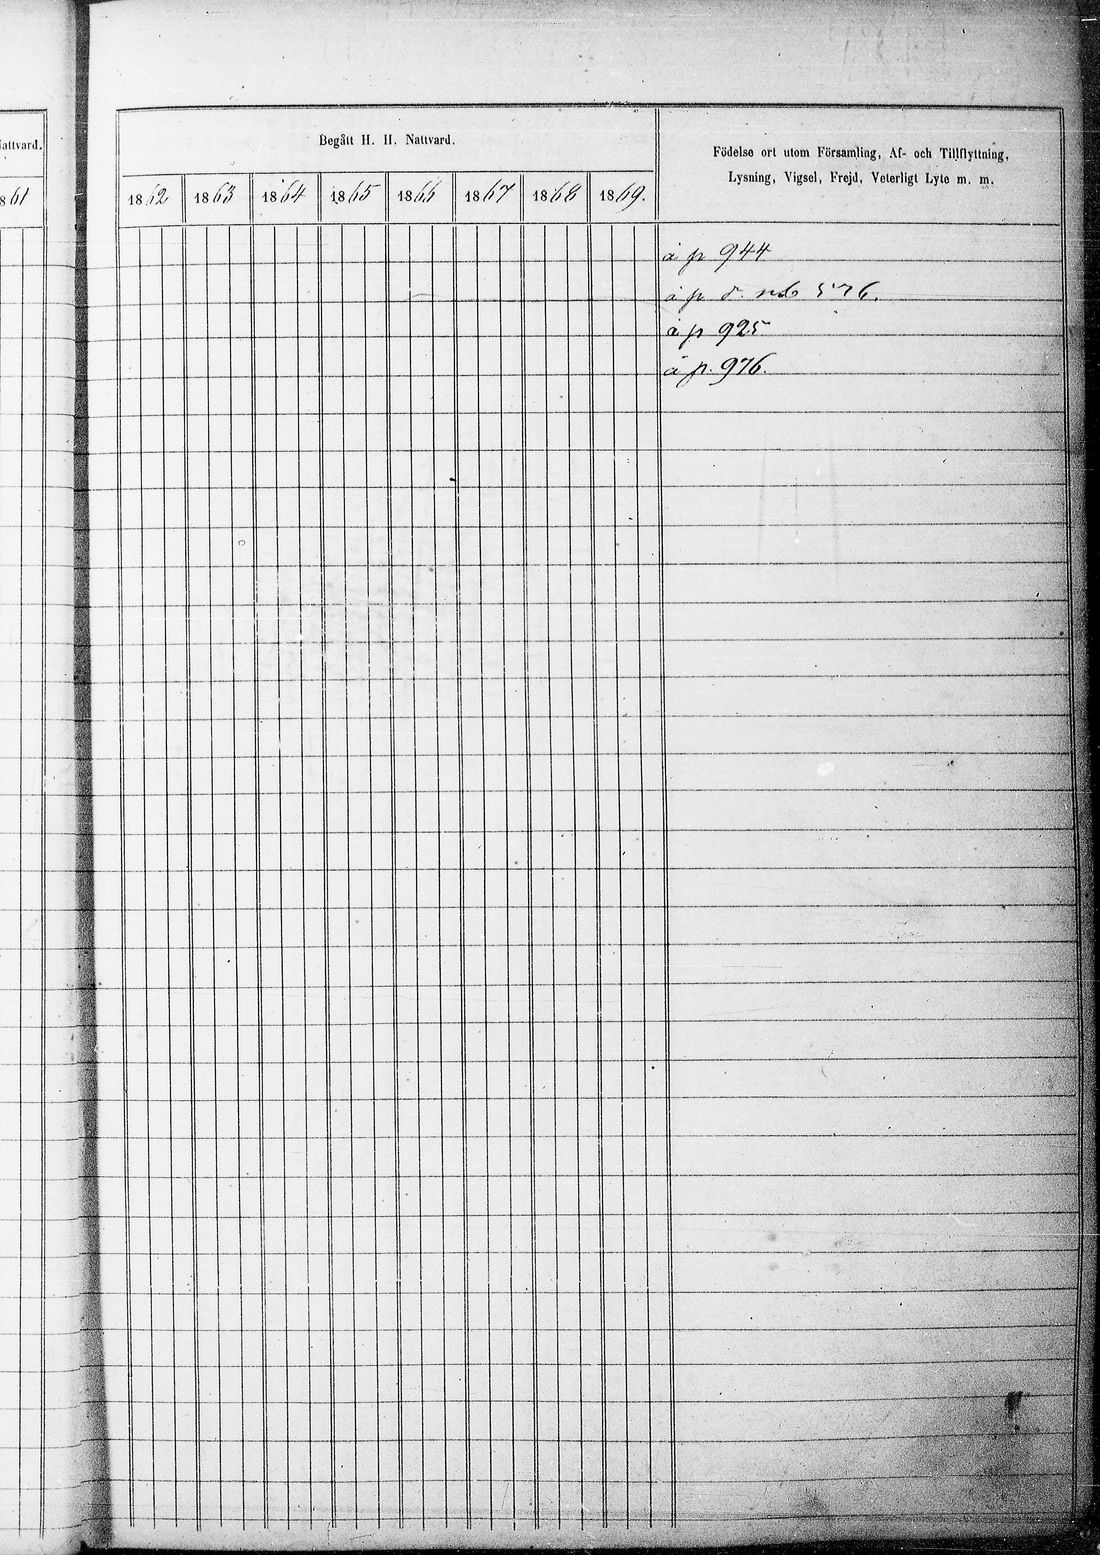 attvard.
861
Begått H. H. Nattvard.
Födelse ort utom Församling, Af- och Tillflyttning,
Lysning, Vigsel, Frejd, Veterligt Lyte m. m.
1862 1863 1864 1865 1866 1867 1868 1869.
à p 944
à p 576.
à p 925
à p. 976.